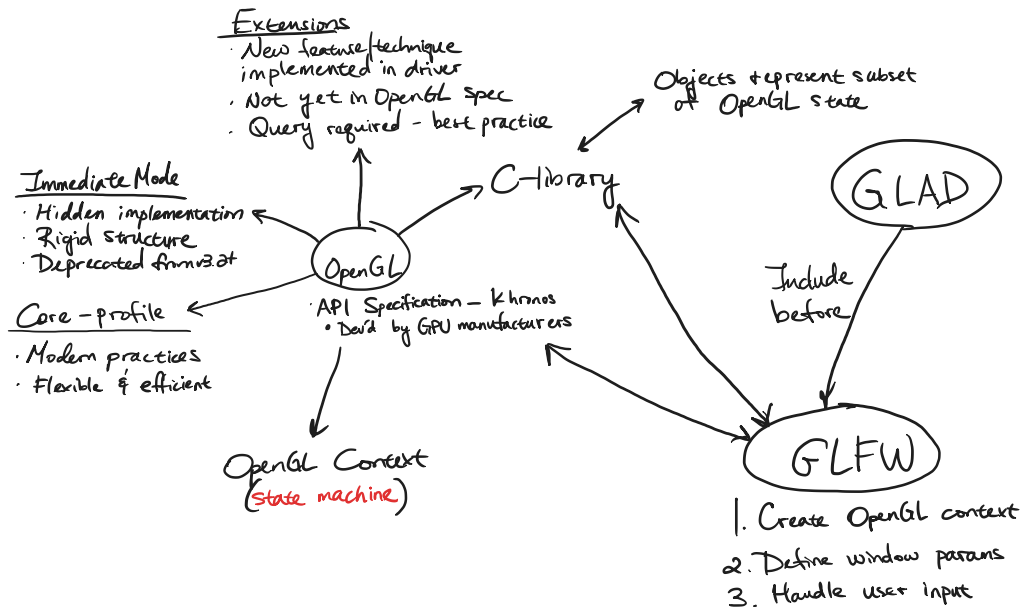 Extensions
· New feature/technique
implemented in driver
· Not yet in OpenGL spec
· Query required - best practice
Objects represent subset
of OpenGL state
C-library
GLAD
Immediate Mode
· Hidden implementation
· Rigid structure
· Deprecated from v3.2+
OpenGL
· API Specification - Khronos
• Dev'd by GPU manufacturers
Include
before
Core-profile
· Modern practices
· Flexible & efficient
OpenGL Context
(state machine)
GLFW
1. Create OpenGL context
2. Define window params
3. Handle user input